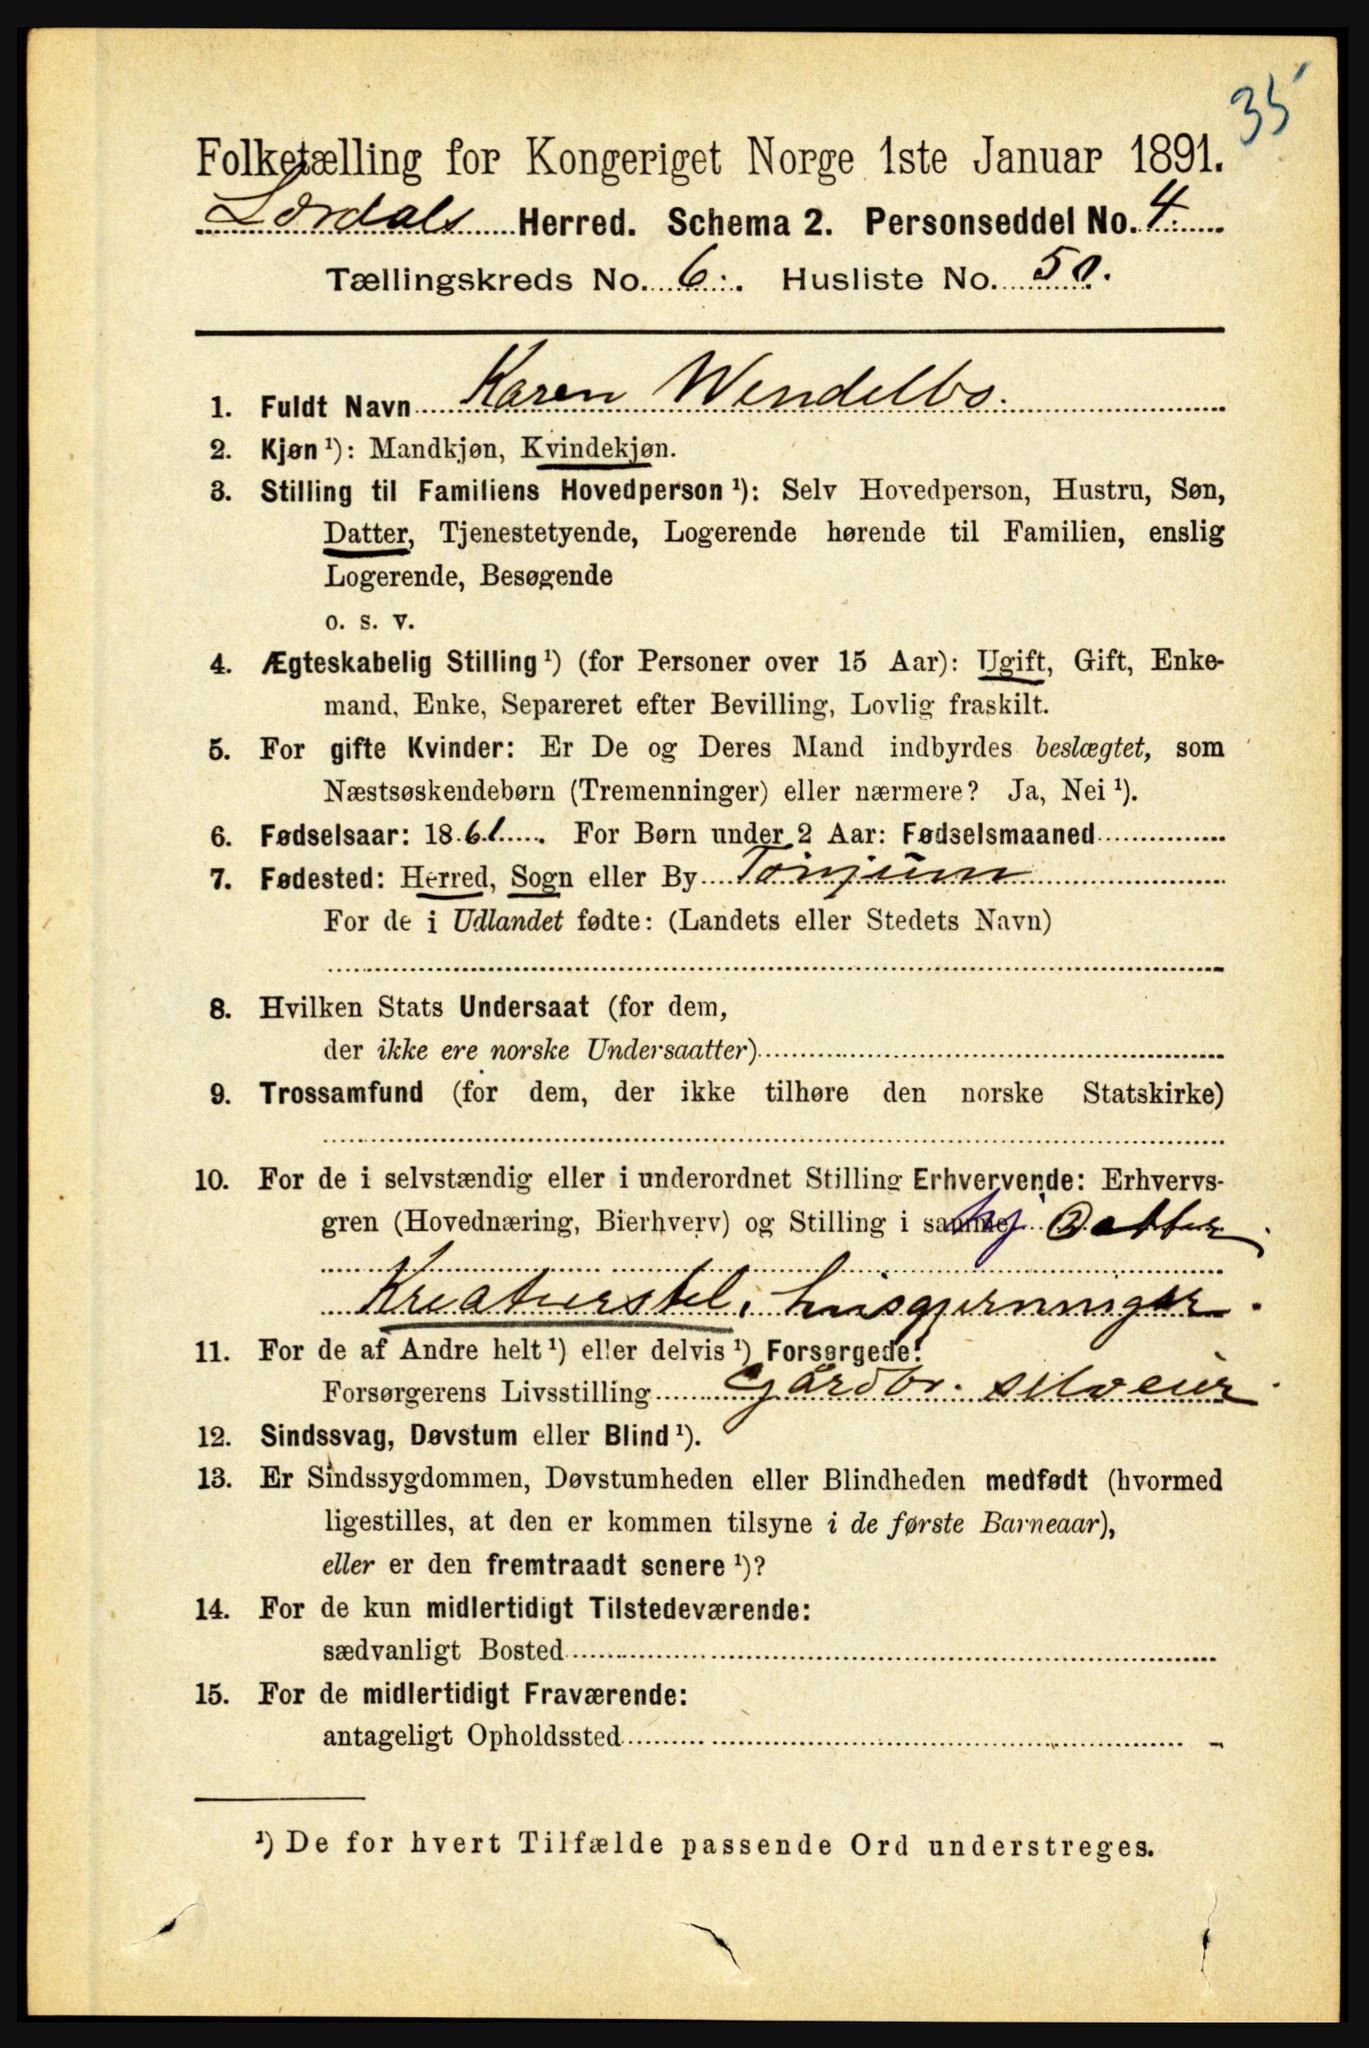 35
Folketælling for Kongeriget Norge 1ste Januar 1891.
Lærdals Herred. Schema 2. Personseddel No. 4.
Tællingskreds No. 6. Husliste No. 50.
1. Fuldt Navn Karen Wendelbo.
2. Kjøn ¹): Mandkjøn, Kvindekjøn.
3. Stilling til Familiens Hovedperson ¹): Selv Hovedperson, Hustru, Søn,
Datter, Tjenestetyende, Logerende hørende til Familien, enslig
Logerende, Besøgende
o. s. v.
4. Ægteskabelig Stilling ¹) (for Personer over 15 Aar): Ugift, Gift, Enke-
mand, Enke, Separeret efter Bevilling, Lovlig fraskilt.
5. For gifte Kvinder: Er De og Deres Mand indbyrdes beslægtet, som
Næstsøskendebørn (Tremenninger) eller nærmere? Ja, Nei ¹).
6. Fødselsaar: 1861. For Børn under 2 Aar: Fødselsmaaned
7. Fødested: Herred, Sogn eller By Tønjum
For de i Udlandet fødte: (Landets eller Stedets Navn)
8. Hvilken Stats Undersaat (for dem,
der ikke ere norske Undersaatter)
9. Trossamfund (for dem, der ikke tilhøre den norske Statskirke)
10. For de i selvstændig eller i underordnet Stilling Erhvervende: Erhvervs-
gren (Hovednæring, Bierhverv) og Stilling i samme hj Datter
Kreaturstel, husgjerninger.
11. For de af Andre helt ¹) eller delvis ¹) Forsørgede:
Forsørgerens Livsstilling Gårdbr. selveier
12. Sindssvag, Døvstum eller Blind ¹).
13. Er Sindssygdommen, Døvstumheden eller Blindheden medfødt (hvormed
ligestilles, at den er kommen tilsyne i de første Barneaar),
eller er den fremtraadt senere ¹)?
14. For de kun midlertidigt Tilstedeværende:
sædvanligt Bosted
15. For de midlertidigt Fraværende:
antageligt Opholdssted
¹) De for hvert Tilfælde passende Ord understreges.